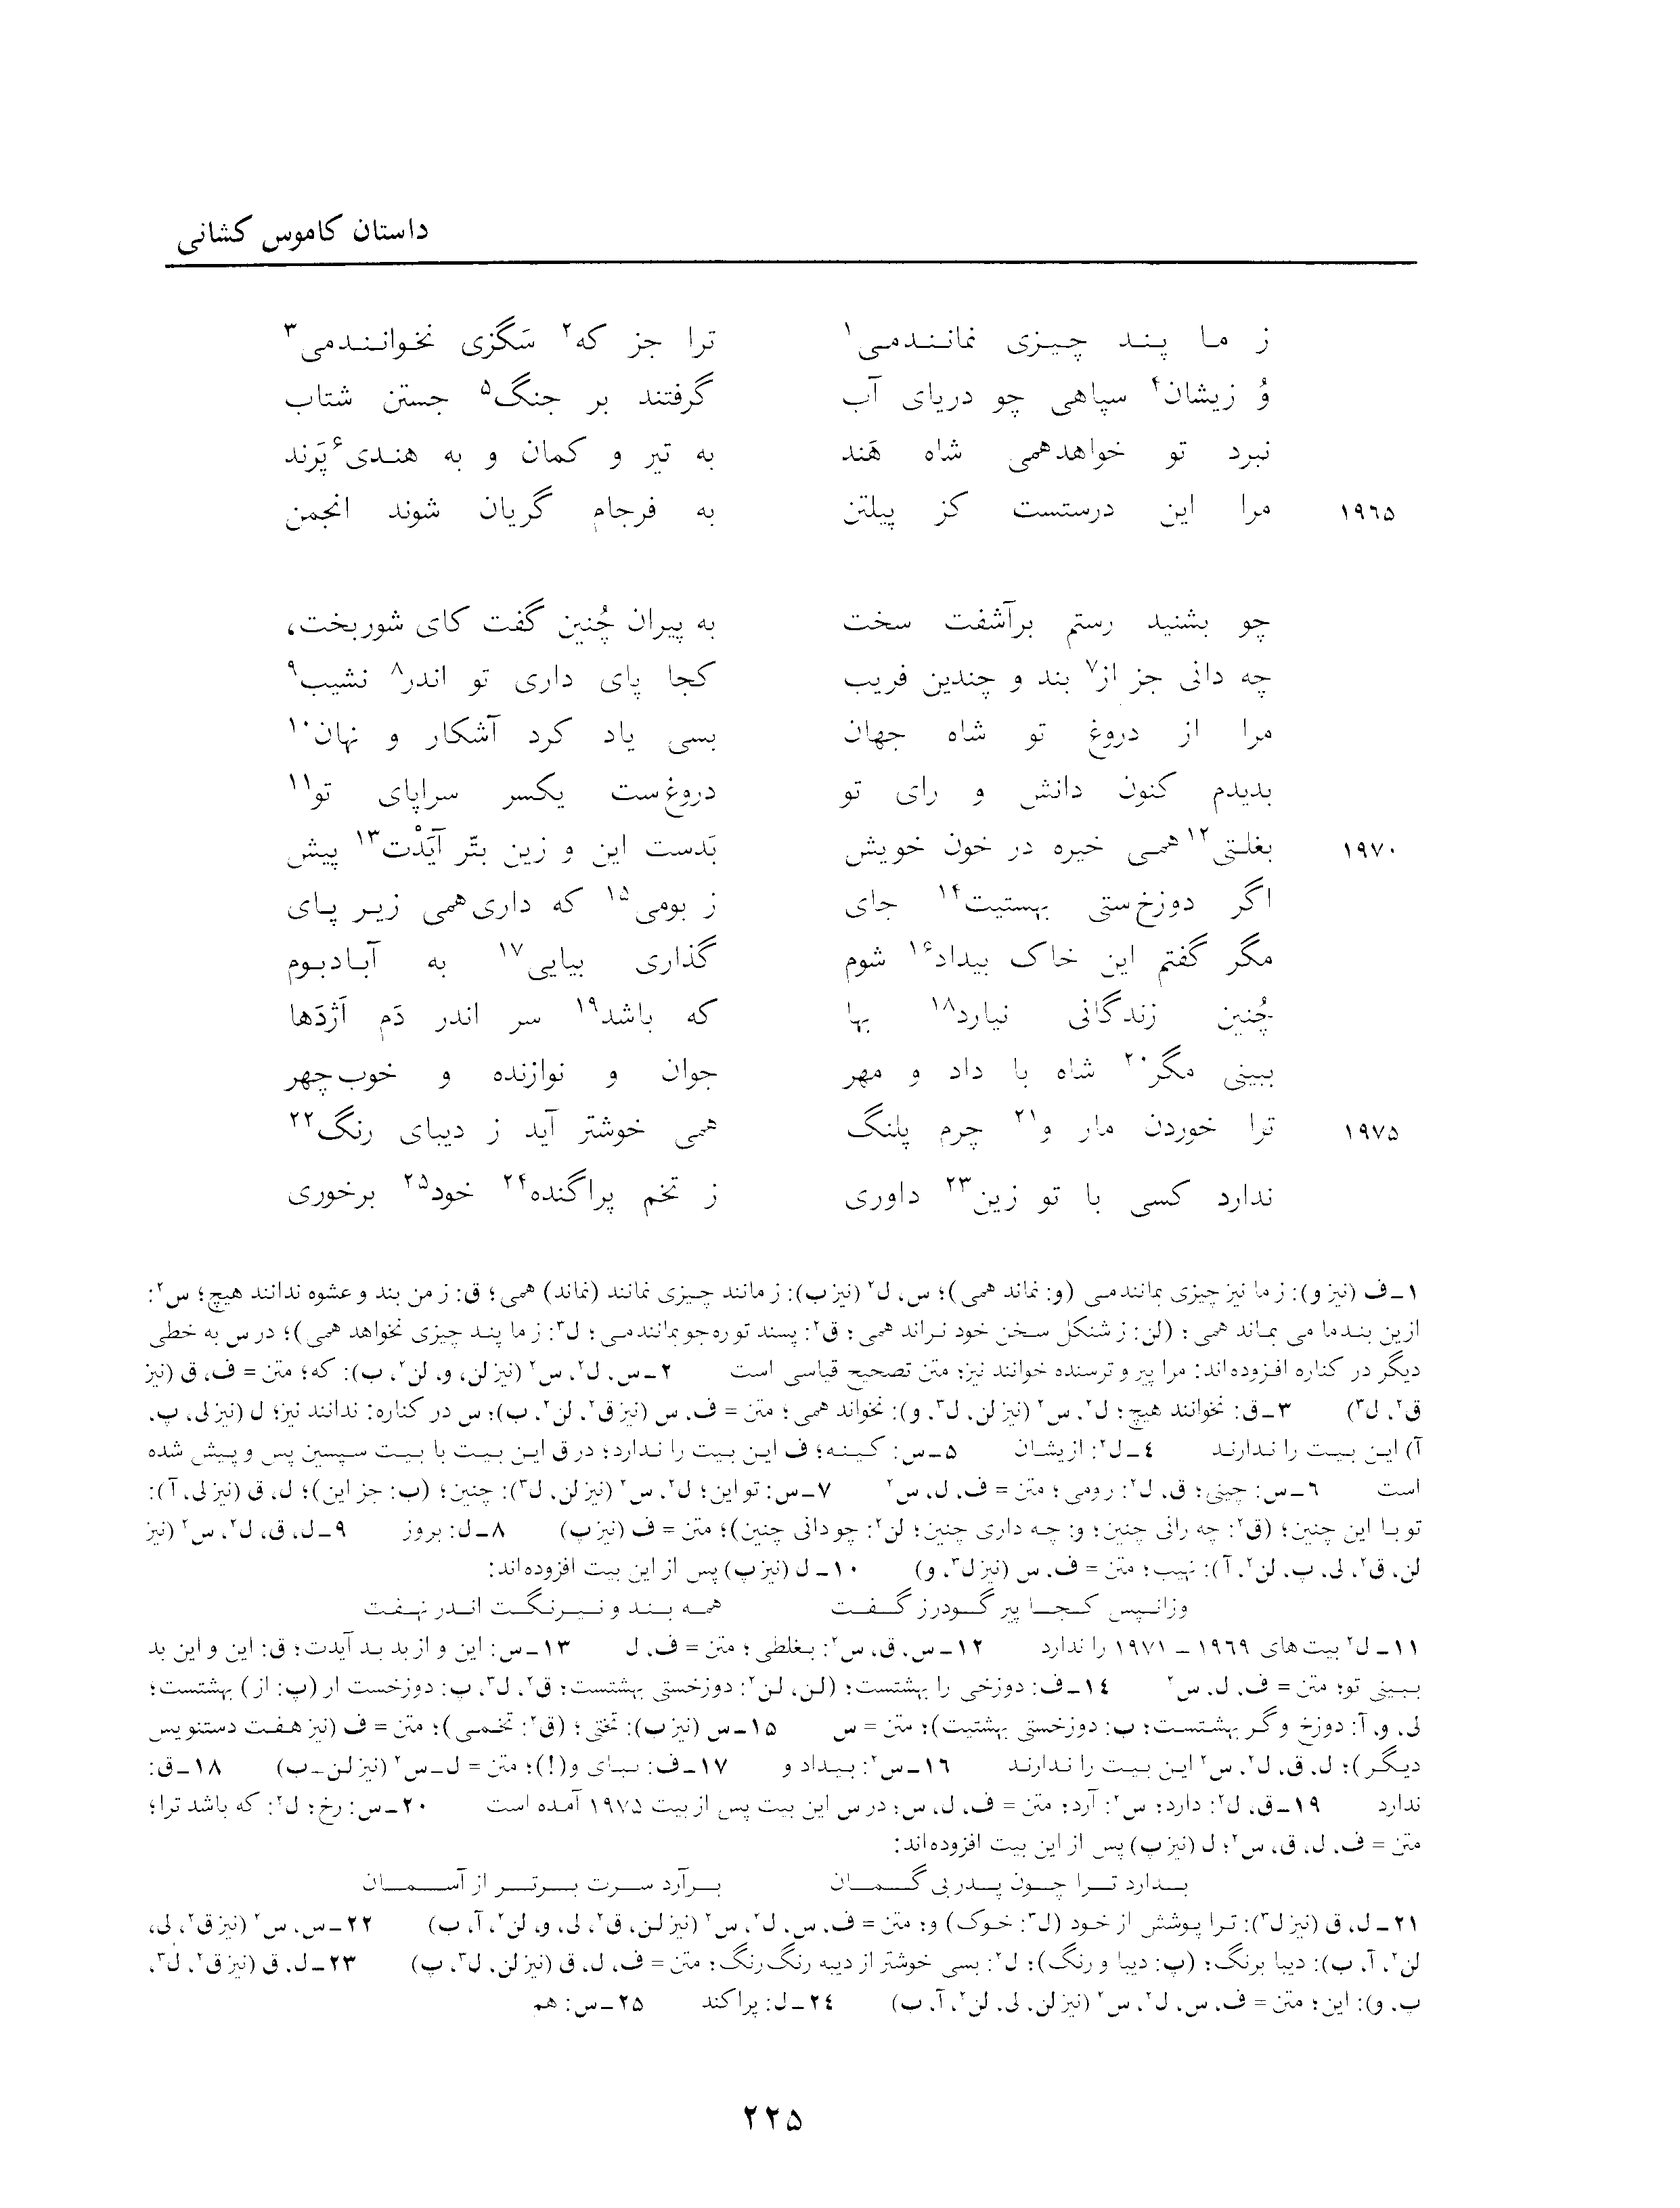 داستان کاموس کشانی
ز ما پند چیزی نمانندمی۱ ترا جز که۲ سَگزی نخوانندمی۳
وُ زیشان۴ سپاهی چو دریای آب گرفتند بر جنگ۵ جستن شتاب
نبرد تو خواهدهمی شاه هَند به تیر و کمان و به هندی۶ پَرند
۱۹۶۵ مرا این درستست کز پیلتن به فرجام گریان شوند انجمن
چو بشنید رستم برآشفت سخت به پیران چُنین گفت کای شوربخت،
چه دانی جز از۷ بند و چندین فریب کجا پای داری تو اندر۸ نشیب۹
مرا از دروغ تو شاه جهان بسی یاد کرد آشکار و نهان۱۰
بدیدم کنون دانش و رای تو دروغ‌ست یکسر سراپای تو۱۱
۱۹۷۰ بغلتی۱۲ همی خیره در خون خویش بَدست این و زین بتّر آیَدْت۱۳ پیش
اگر دوزخ‌ستی بهستیت۱۴ جای ز بومی۱۵ که داری‌همی زیر پای
مگر گفتم این خاک بیداد۱۶ شوم گذاری بیایی۱۷ به آبادبوم
چُنین زندگانی نیارد۱۸ بها که باشد۱۹ سر اندر دَم اَژدَها
ببینی مگر۲۰ شاه با داد و مهر جوان و نوازنده و خوب‌چهر
۱۹۷۵ ترا خوردن مار و۲۱ چرم پلنگ همی خوشتر آید ز دیبای رنگ۲۲
ندارد کسی با تو زین۲۳ داوری ز تخم پراگنده۲۴ خود۲۵ برخوری
۱ـ ف (نیز و): ز ما نیز چیزی بمانندمی (و: نماند همی)؛ س، ل۲ (نیز ب): ز مانند چیزی نمانند (نماند) همی؛ ق: ز من بند و عشوه ندانند هیچ؛ س۲:
ازین بندما می بماند همی؛ (لن: ز شنکل سخن خود نراند همی؛ ق۲: پسند تو ره‌جو بمانندمی؛ ل۳: ز ما پند چیزی نخواهد همی)؛ در س به خطی
دیگر در کناره افزوده‌اند: مرا پیر و ترسنده خوانند نیز؛ متن تصحیح قیاسی است ۲ـ س، ل۲، س۲ (نیز لن، و، لن۲، ب): که؛ متن = ف، ق (نیز
ق۲، ل۳) ۳ـ ق: نخوانند هیچ؛ ل۲، س۲ (نیز لن، ل۳، و): نخواند همی؛ متن = ف، س (نیز ق۲، لن۲، ب)؛ س در کناره: ندانند نیز؛ ل (نیز لی، پ،
آ) این بیت را ندارند ۴ـ ل۲: ازیشان ۵ـ س: کینه؛ ف این بیت را ندارد؛ در ق این بیت با بیت سپسین پس و پیش شده
است ۶ـ س: چینی؛ ق، ل۲: رومی؛ متن = ف، ل، س۲ ۷ـ س: تو این؛ ل۲، س۲ (نیز لن، ل۳): چنین؛ (ب: جز این)؛ ل، ق (نیز لی، آ):
تو با این چنین؛ (ق۲: چه رانی چنین؛ و: چه داری چنین؛ لن۲: چو دانی چنین)؛ متن = ف (نیز پ) ۸ـ ل: بروز ۹ـ ل، ق، ل۲، س۲ (نیز
لن، ق۲، لی، پ، لن۲، آ): نهیب؛ متن = ف، س (نیز ل۳، و) ۱۰ـ ل (نیز پ) پس از این بیت افزوده‌اند:
وزانپس کجا پیر گودرز گفت همه بند و نیرنگت اندر نهفت
۱۱ـ ل۲ بیت‌های ۱۹۶۹ ـ ۱۹۷۱ را ندارد ۱۲ـ س، ق، س۲: بغلطی؛ متن = ف، ل ۱۳ـ س: این و از بد بد آیدت؛ ق: این و این بد
ببینی تو؛ متن = ف، ل، س۲ ۱۴ـ ف: دوزخی را بهشتست؛ (لن، لن۲: دوزخستی بهشتست؛ ق۲، ل۳، ب: دوزخست ار (پ: از) بهشتست؛
لی، و، آ: دوزخ و گر بهشتست؛ ب: دوزخستی بهشتیت)؛ متن = س ۱۵ـ س (نیز ب): تختی؛ (ق۲: تخمی)؛ متن = ف (نیز هفت دستنویس
دیگر)؛ ل، ق، ل۲، س۲ این بیت را ندارند ۱۶ـ س۲: بیداد و ۱۷ـ ف: ببای و(!)؛ متن = ل‌ـ س۲ (نیز لن‌ـ ب) ۱۸ـ ق:
ندارد ۱۹ـ ق، ل۲: دارد؛ س۲: آرد؛ متن = ف، ل، س؛ در س این بیت پس از بیت ۱۹۷۵ آمده است ۲۰ـ س: رخ؛ ل۲: که باشد ترا؛
متن = ف، ل، ق، س۲؛ ل (نیز پ) پس از این بیت افزوده‌اند:
بدارد ترا چون پدر بی گمان برآرد سرت برتر از آسمان
۲۱ـ ل، ق (نیز ل۳): ترا پوشش از خود (ل۳: خوک) و؛ متن = ف، س، ل۲، س۲ (نیز لن، ق۲، لی، و، لن۲، آ، ب) ۲۲ـ س، س۲ (نیز ق۲، لی،
لن۲، آ، ب): دیبا برنگ؛ (پ: دیبا و رنگ)؛ ل۲: بسی خوشتر از دیبه رنگ‌رنگ؛ متن = ف، ل، ق (نیز لن، ل۳، پ) ۲۳ـ ل، ق (نیز ق۲، ل۳،
پ، و): این؛ متن = ف، س، ل۲، س۲ (نیز لن، لی، لن۲، آ، ب) ۲۴ـ ل: پراکند ۲۵ـ س: هم
۲۲۵